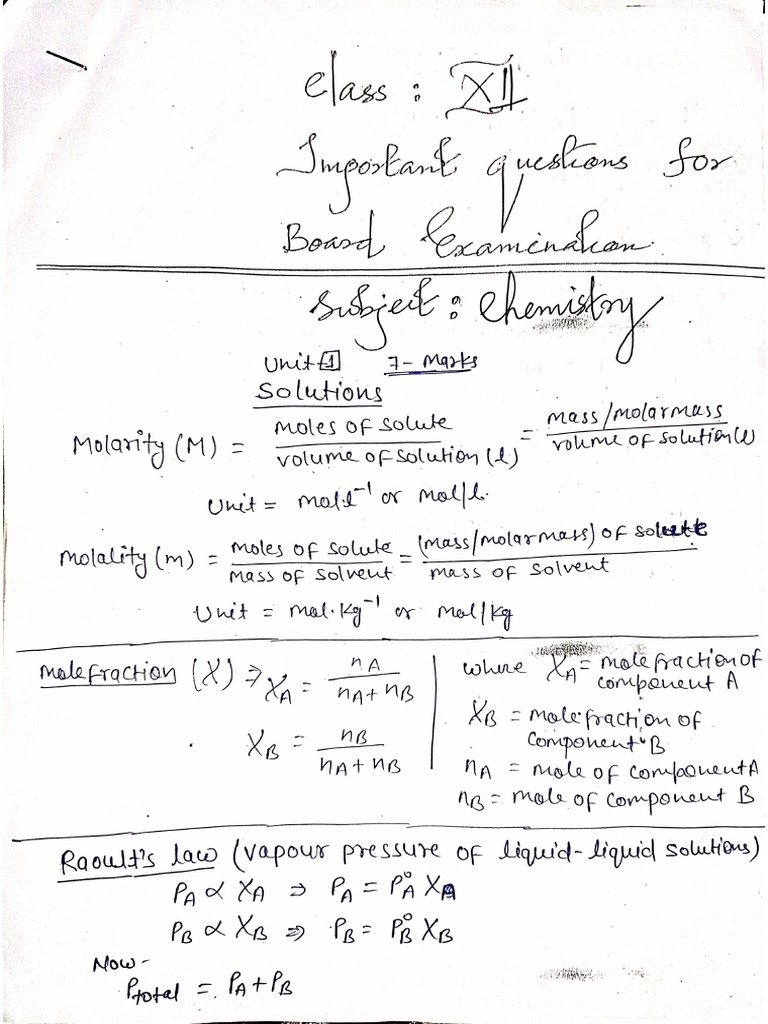 Class : XII
Important questions for
Board Examination
Subject : Chemistry
Unit-1 7- Marks
Solutions
Molarity (M) = moles of solute / volume of solution (l) = mass/molarmass / volume of solution (l)
Unit = mol.l⁻¹ or mol/l.
Molality (m) = moles of solute / mass of solvent = (mass/molar mass) of solute / mass of solvent
Unit = mol.kg⁻¹ or mol/kg
Molefraction (X) ⇒ X_A = n_A / n_A + n_B
X_B = n_B / n_A + n_B
where X_A = molefraction of
component A
X_B = molefraction of
component B
n_A = mole of component A
n_B = mole of component B
Raoult's law (vapour pressure of liquid-liquid solutions)
P_A ∝ X_A ⇒ P_A = P°_A X_A
P_B ∝ X_B ⇒ P_B = P°_B X_B
Now-
P_total = P_A + P_B